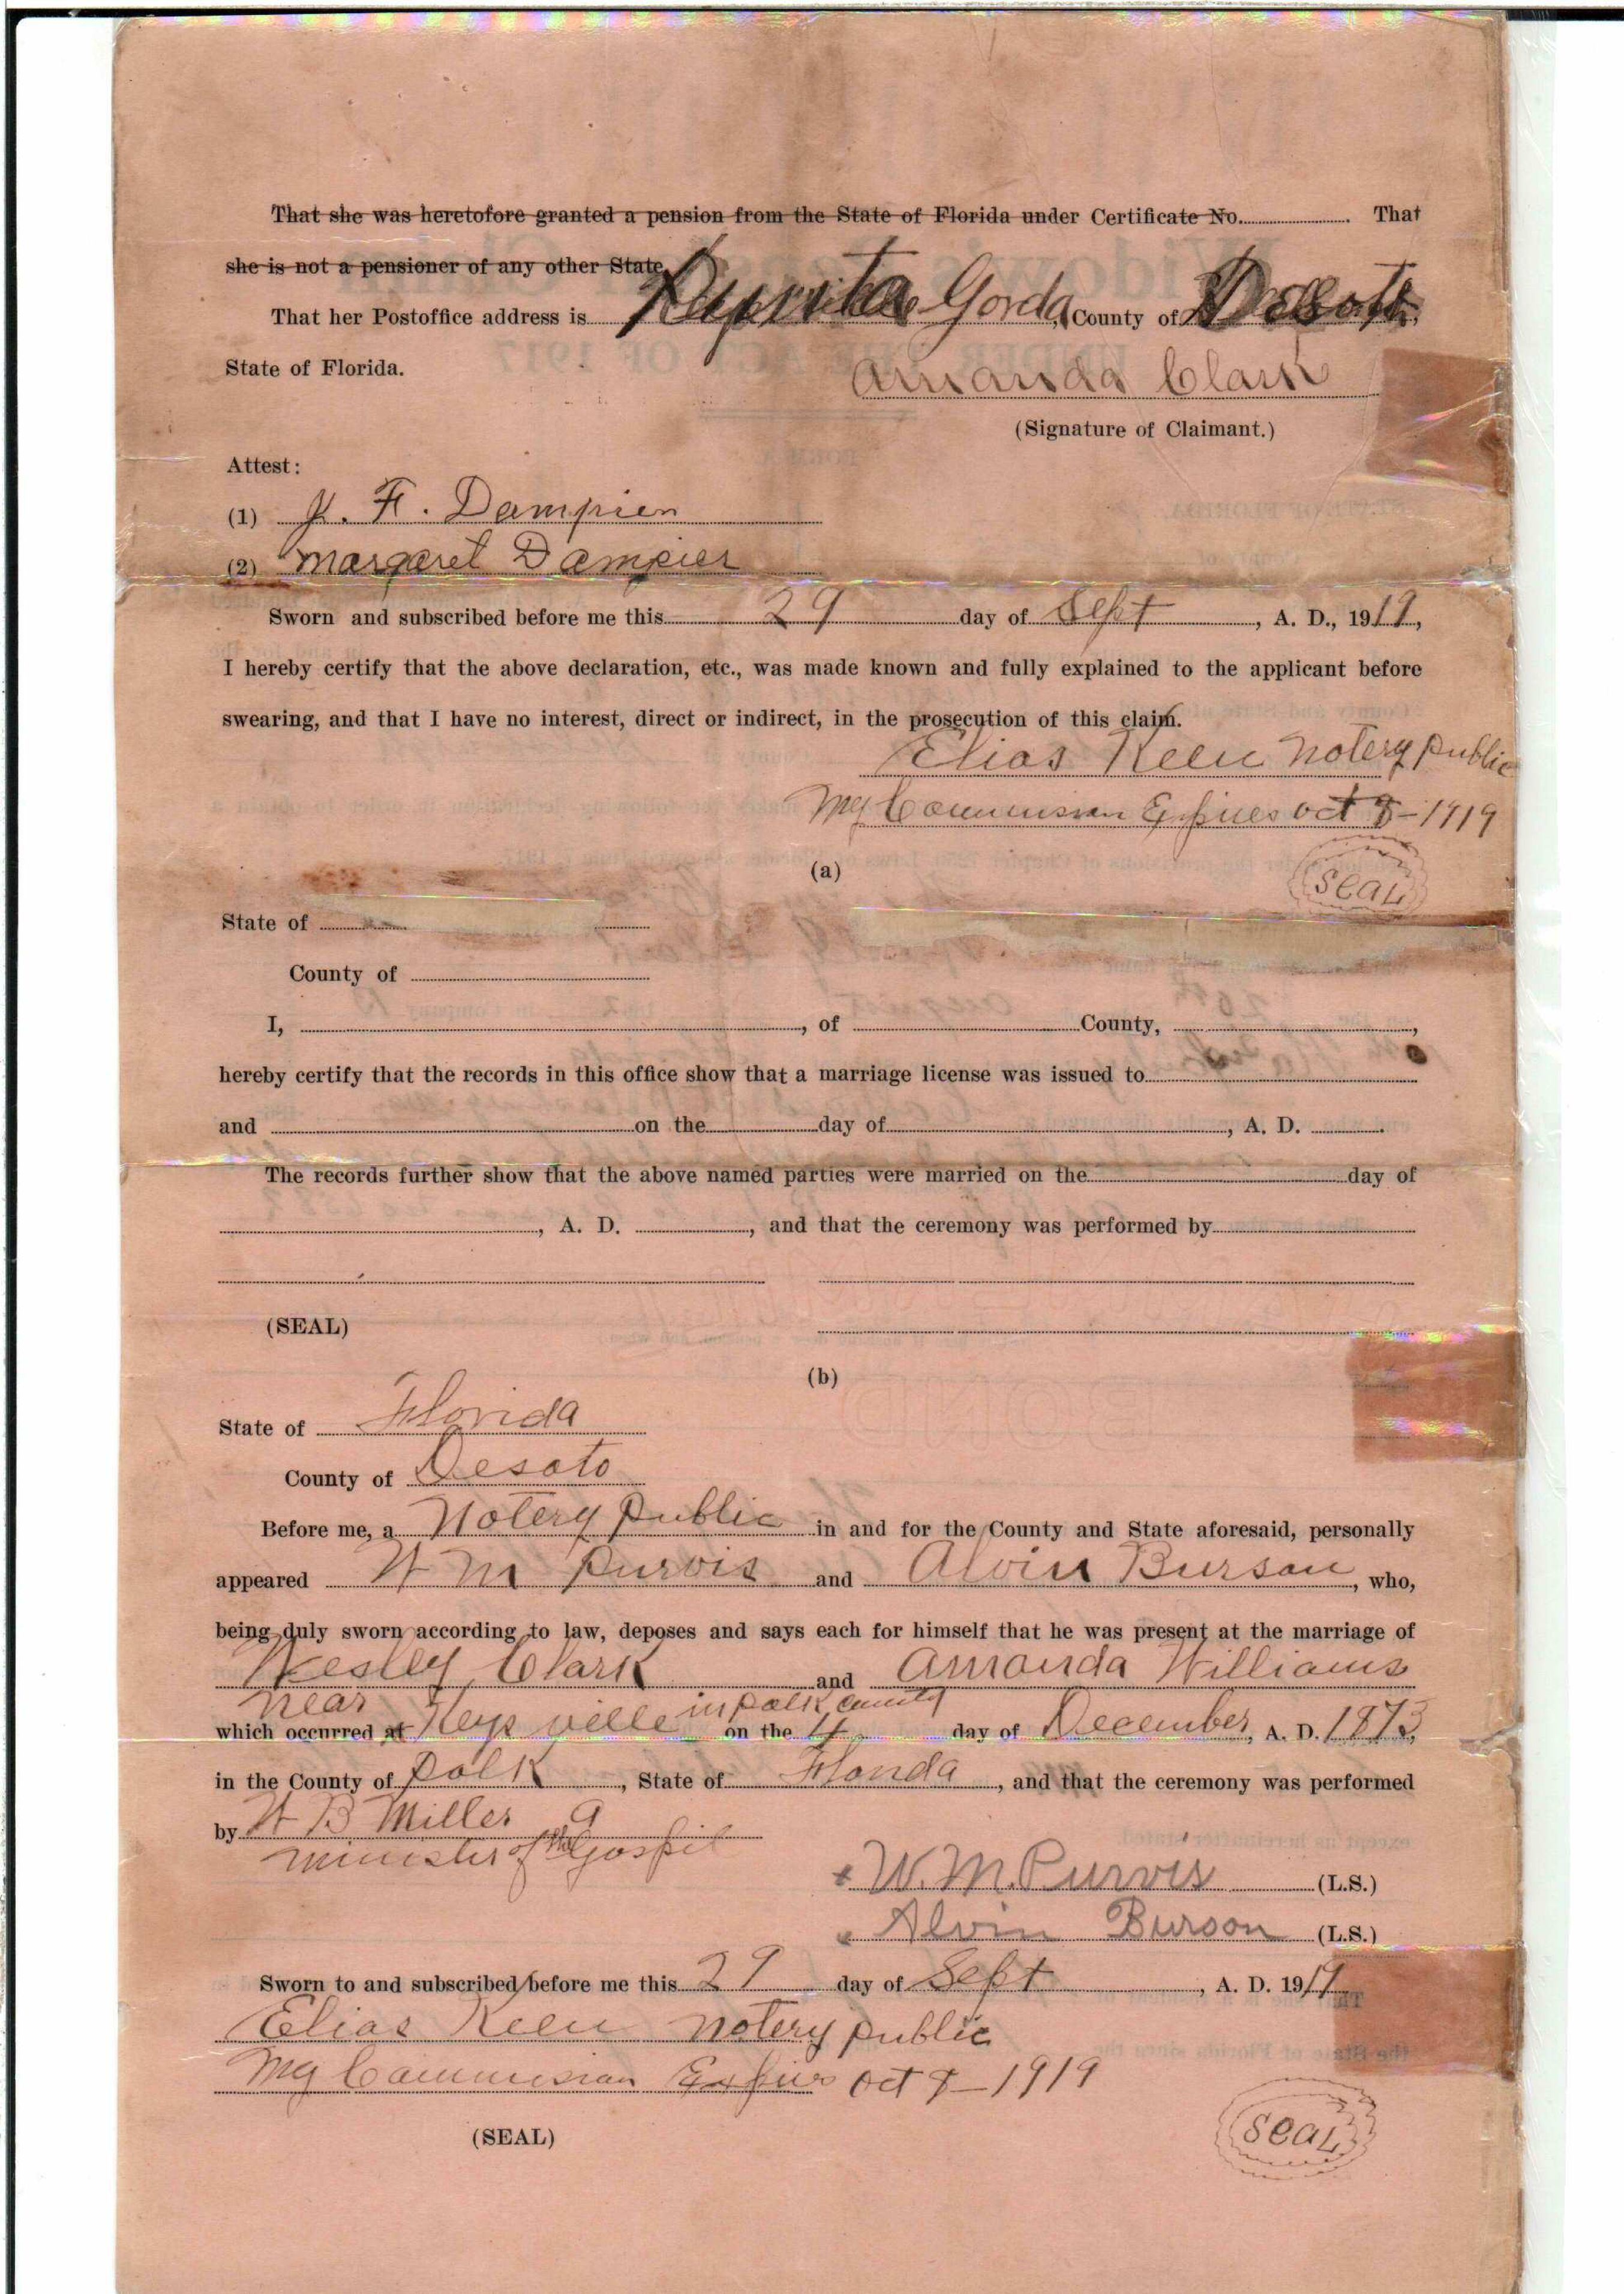 That she was heretofore granted a pension from the State of Florida under Certificate No. That
she is not a pensioner of any other State.
That her Postoffice address is Gorda, County of Desoto,
State of Florida.
Amanda Clark
(Signature of Claimant.)
Attest:
(1) J. F. Dampier
(2) Margaret Dampier
Sworn and subscribed before me this 29 day of Sept, A. D., 1919,
I hereby certify that the above declaration, etc., was made known and fully explained to the applicant before
swearing, and that I have no interest, direct or indirect, in the prosecution of this claim.
Elias Keen Notery Public
My Commission Expires Oct 8-1919
(a)
SEAL
State of
County of
I, , of County, ,
hereby certify that the records in this office show that a marriage license was issued to
and on the day of , A. D. .
The records further show that the above named parties were married on the day of
, A. D. , and that the ceremony was performed by
(SEAL)
(b)
State of Florida
County of Desoto
Before me, a Notery Public in and for the County and State aforesaid, personally
appeared W M Purvis and Alvin Burson, who,
being duly sworn according to law, deposes and says each for himself that he was present at the marriage of
Wesley Clark and Amanda Williams
near in Polk County
which occurred at Keysville on the 4 day of December, A. D. 1873,
in the County of Polk, State of Florida, and that the ceremony was performed
by W B Miller a
minister of the Gospil
x W. M. Purvis (L.S.)
x Alvin Burson (L.S.)
Sworn to and subscribed before me this 29 day of Sept, A. D. 1919
Elias Keen Notery Public
My Commission Expires Oct 8-1919
(SEAL)
SEAL